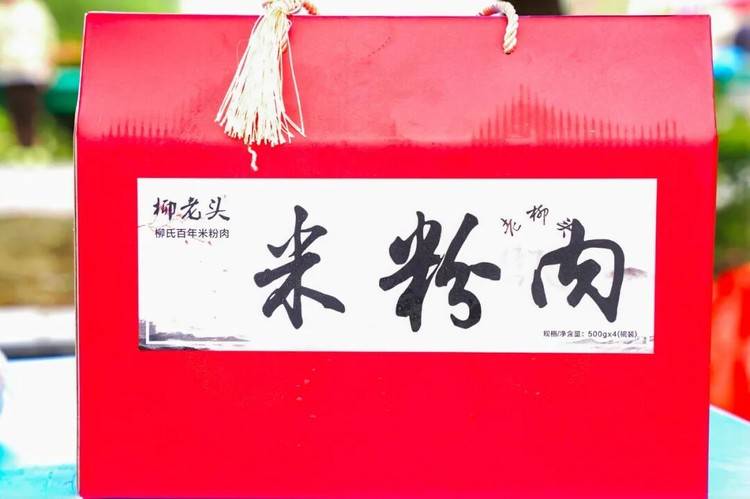 柳老头
柳氏百年米粉肉
米粉肉
规格/净含量：500gx4(碗装)